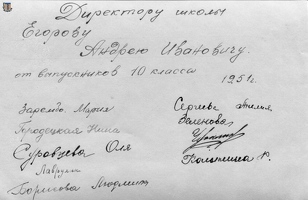 Директору школы
Егорову
Андрею Ивановичу.
от выпускников 10 класса
1951г.
Заремба Мария
Городецкая Нина
Суровцева Оля
Лаврут
Борисова Людмила
Сергиева
Зеленова
Копытина К.